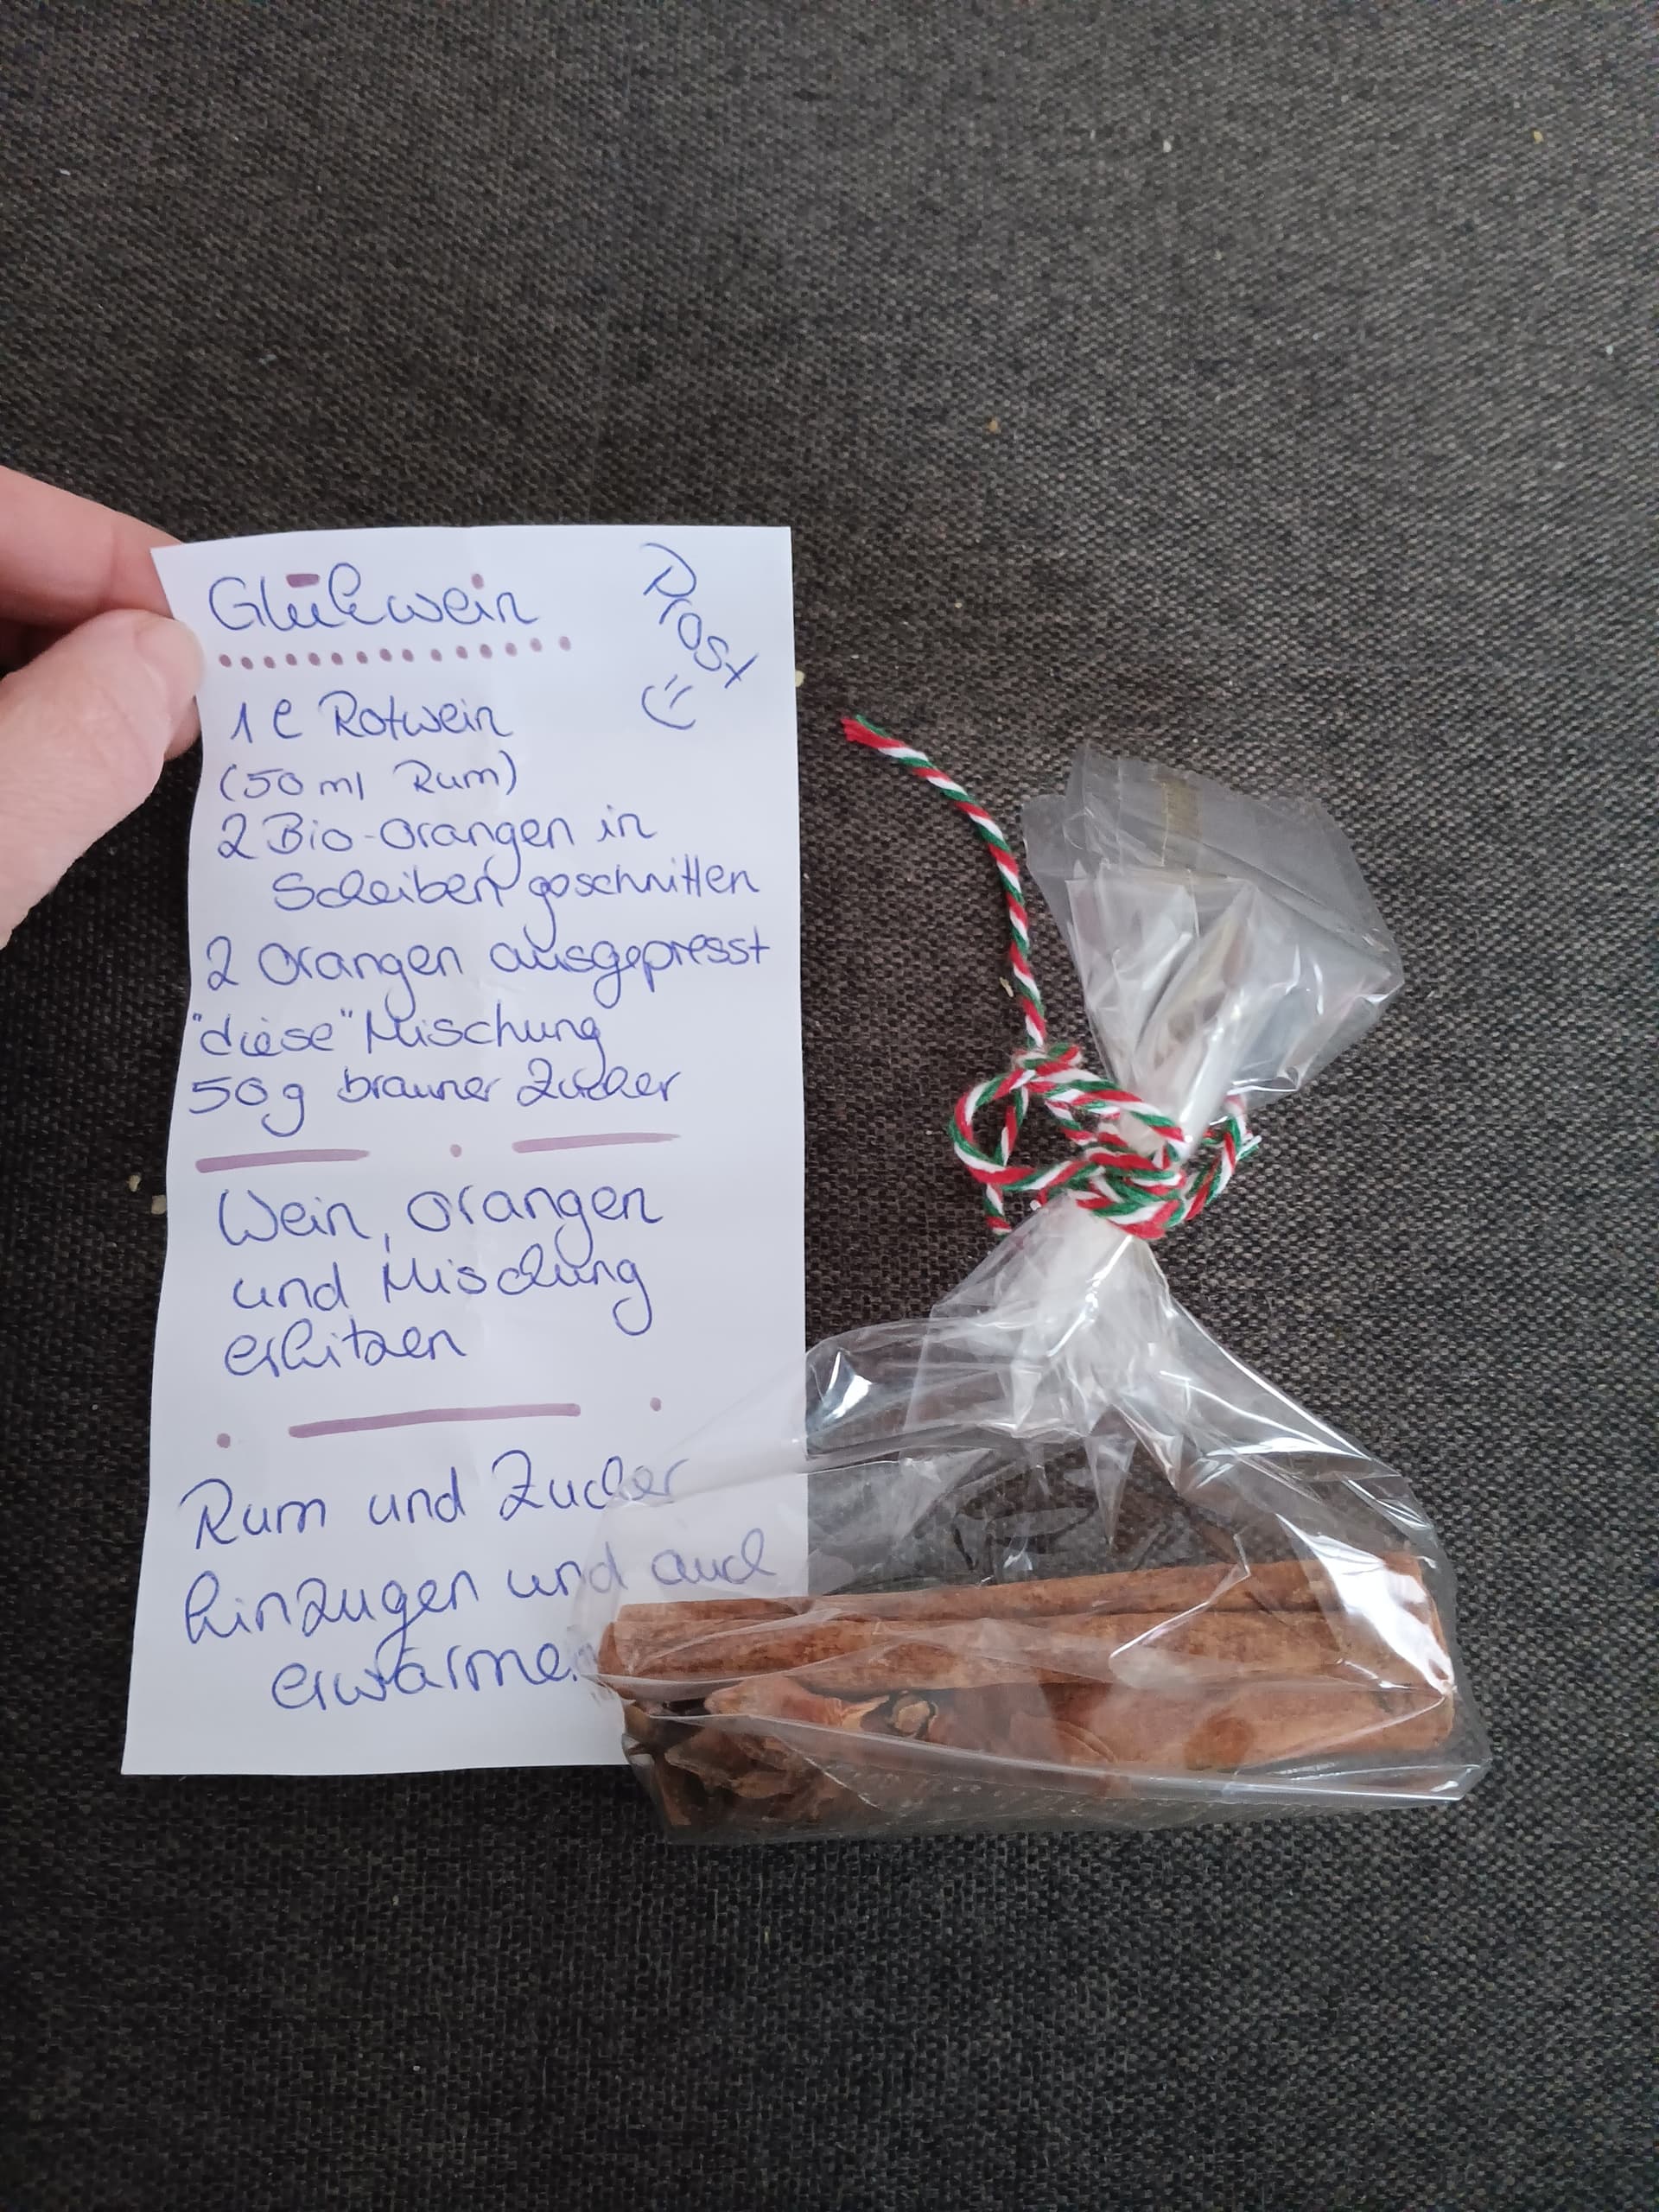 Glühwein
Prost
1 l Rotwein
(50 ml Rum)
2 Bio-Orangen in
Scheiben geschnitten
2 Orangen ausgepresst
"diese" Mischung
50g brauner Zucker
Wein, Orangen
und Mischung
erhitzen
Rum und Zucker
hinzugen und auch
erwärmen